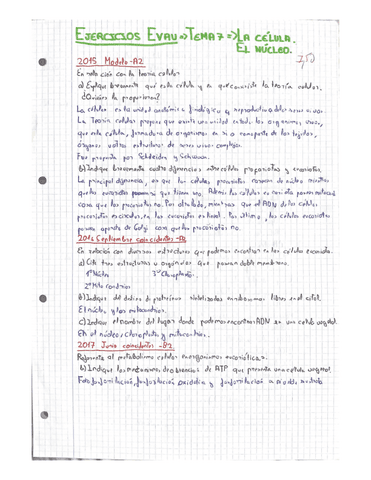 EJERCICIOS EVAU => TEMA 7 => LA CÉLULA.
EL NÚCLEO.
7,50
2015 Modelo-A2
En relación con la teoría celular
a) Explique brevemente qué es la célula y en qué consiste la teoría celular.
¿Quiénes la propusieron?
La célula es la unidad anatómica, fisiológica y reproductiva de los seres vivos.
La Teoría celular propone que existe una unidad en todos los organismos vivos,
que es la célula, formadora de organismos en sí o componente de los tejidos,
órganos y otras estructuras de seres vivos complejos.
Fue propuesta por Schleiden y Schwann.
b) Indique brevemente cuatro diferencias entre células procariotas y eucariotas.
La principal diferencia, es que las células procariotas carecen de núcleo mientras
que las eucariotas si tienen uno. Además las células eucariotas poseen
cosa que las procariotas no. Por otro lado, mientras que el ADN de las células
procariotas es circular, en las eucariotas es lineal. Por último, las células eucariotas
poseen aparato de Golgi cosa que las procariotas no.
2016 Septiembre coincidentes -B2
En relación con diversas estructuras que podemos encontrar en las células eucariotas.
a) Cite tres estructuras u orgánulos que posean doble membrana.
1º Núcleo 3º Cloroplastos.
2º Mitocondrias
b) Indique del destino de proteínas sintetizadas en ribosomas libres en el citosol.
El núcleo y las mitocondrias.
c) Indique el nombre del lugar donde podemos encontrar ADN en una célula vegetal.
En el núcleo, cloroplastos y mitocondrias.
2017 Junio coincidentes -B2
Referente al metabolismo celular en organismos eucarióticos.
b) Indique los mecanismos de obtención de ATP que presenta una célula vegetal.
Fotofosforilación, fosforilación oxidativa y fosforilación a nivel de sustrato